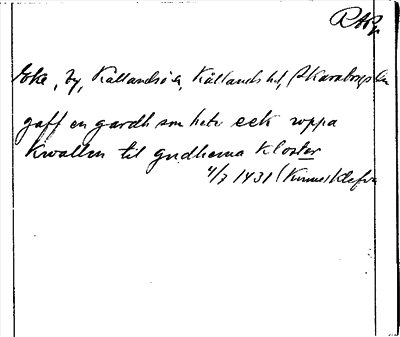 RAp.
Eke, by, Kållandsö s, Kållands hd, Skaraborgs län
gaff en gardh som hetr eek vppa
Kwallen til gudhema kloster
4/7 1431 (Kinne Klefva